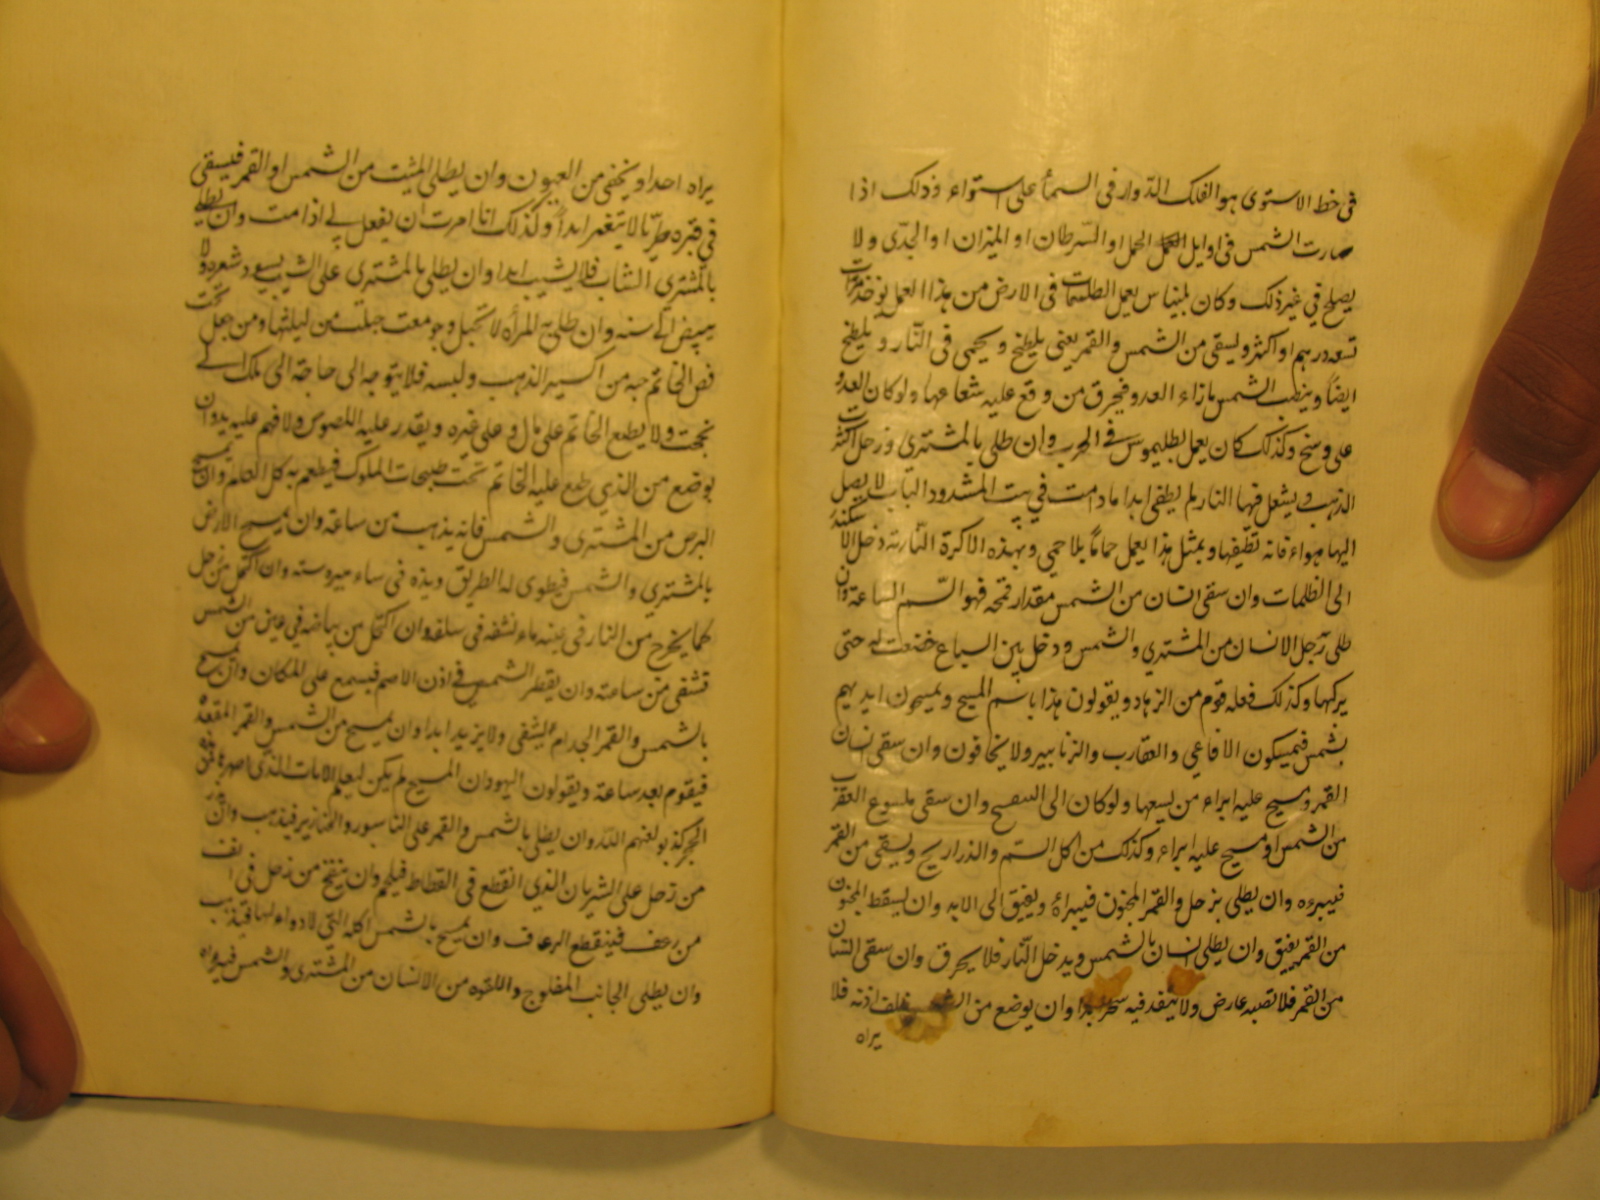 فى خط الاستوى هو الفلك الدّوار فى السمأ على استواء وذلك اذا
صارت الشمس فى اوايل الحمل او السّرطان او الميزان او الجدى ولا
يصلح فى غير ذلك وكان بليناس يعمل الطلسمات فى الارض من هذا العمل يوخذ
تسعه درهم او اكثر ويسقى من الشمس والقمر يعنى يلطخ ويحمى فى النّار ويلطخ
ايضاً وينصب الشمس بازاء العدو فيحرق من وقع عليه شعاعها ولو كان العدو
على وسخ وكذلك كان يعمل بطليموس فى الحرب وان طلى بالمشترى وزحل
الذهب يشعل فيها النار لم يطفى ابدا مادمت فى بيت المشدود الباب لا يصل
اليها هواء فانه تطفيها وبمثل هذا يعمل حماماً بلا حمى وبهذه الاكرة النّارية دخل الاسكندر
الى الظلمات وان سقى انسان من الشمس مقدار قمحه فهو السّم الساعة وان
طلى رجل الانسان من المشترى والشمس ودخل بين السباع خضعت له حتى
يركبها وكذلك فعله قوم من الزهاد ويقولون هذا باسم المسيح ويمسحون ايديهم
بشمس فيمسكون الافاعى والعقارب والزنابير ولا يخافون وان سقى انسان
القمر ومسح عليه ابراء من لسعها ولو كان الى وان سقى ملسوع العقرب
من الشمس او مسح عليه ابراء وكذلك من اكل السّم والذراريح ويسقى من القمر
فيبرءه وان يطلى بزحل والقمر المجنون فيبراءُ ويفيق الى الابد وان يسقط المجنون
من القمر يفيق وان يطلى انسان بالشمس ويدخل النّار فلا يحرق وان سقى النسان
من القمر فلا تصبه عارض ولا ينفد فيه سحر ابدا وان يوضع من خلف اذنه فلا
يراه
يراه احد او يخفى من العيون وان يطلى الميت من الشمس او القمر فيسقى
فى قبره طريّا لا يتغير ابداً وكذلك انا امرت ان يفعل بى اذا مت وان يطلى
بالمشترى الشاب فلا يشيب ابدا وان يطلى بالمشترى على الشيب يسود شعره ولا
يبيض الى سنه وان طلى به المرأه لا تحبل وجومعت حبلت من ليلتها ومن جعل تحت
فص الخاتم حبه من اكسير الذهب ولبسه فلا يتوجه الى حاجة الى ملك الى
نجحت ولا يطبع الخاتم على مال وعلى غيره ويقدر عليه اللصوص ولا فهم عليه يد وان
يوضع من الذى طبع عليه الخاتم تحت طبيخات الملوك فيطعم به كل العالم وان يمسح
البرص من المشترى والشمس فانه يذهب من ساعة وان يمسح الارض
بالمشترى والشمس فيطوى له الطريق وان اكتحل من زحل
كما يخرج من النار فى عينه ماء نشفه فى ساعه وان اكتحل من بياضه فى عين من الشمس
تشفى من ساعته وان يقطر الشمس فى اذن الاصم فيسمع على المكان وان يمسح
بالشمس والقمر الجدام اليشفى ولا يزيد ابدا وان يمسح من الشمس والقمر المقعد
فيقوم بعد ساعة ويقولون اليهود ان المسيح لم يكن ليعلم الايات الذى
كذبو لعنهم اللّه وان يطلى بالشمس والقمر على الناسور والخنازير فيذهب وان
من زحل على الشريان الذى انقطع فى القطاط فيلحم وان ينفخ من زحل فى انف
من رعف فينقطع الرعاف وان يمسح بالشمس اكلة التى لا دواء لها فتذهب
وان يطلى الجانب المفلوج واللقوه من الانسان من المشترى والشمس